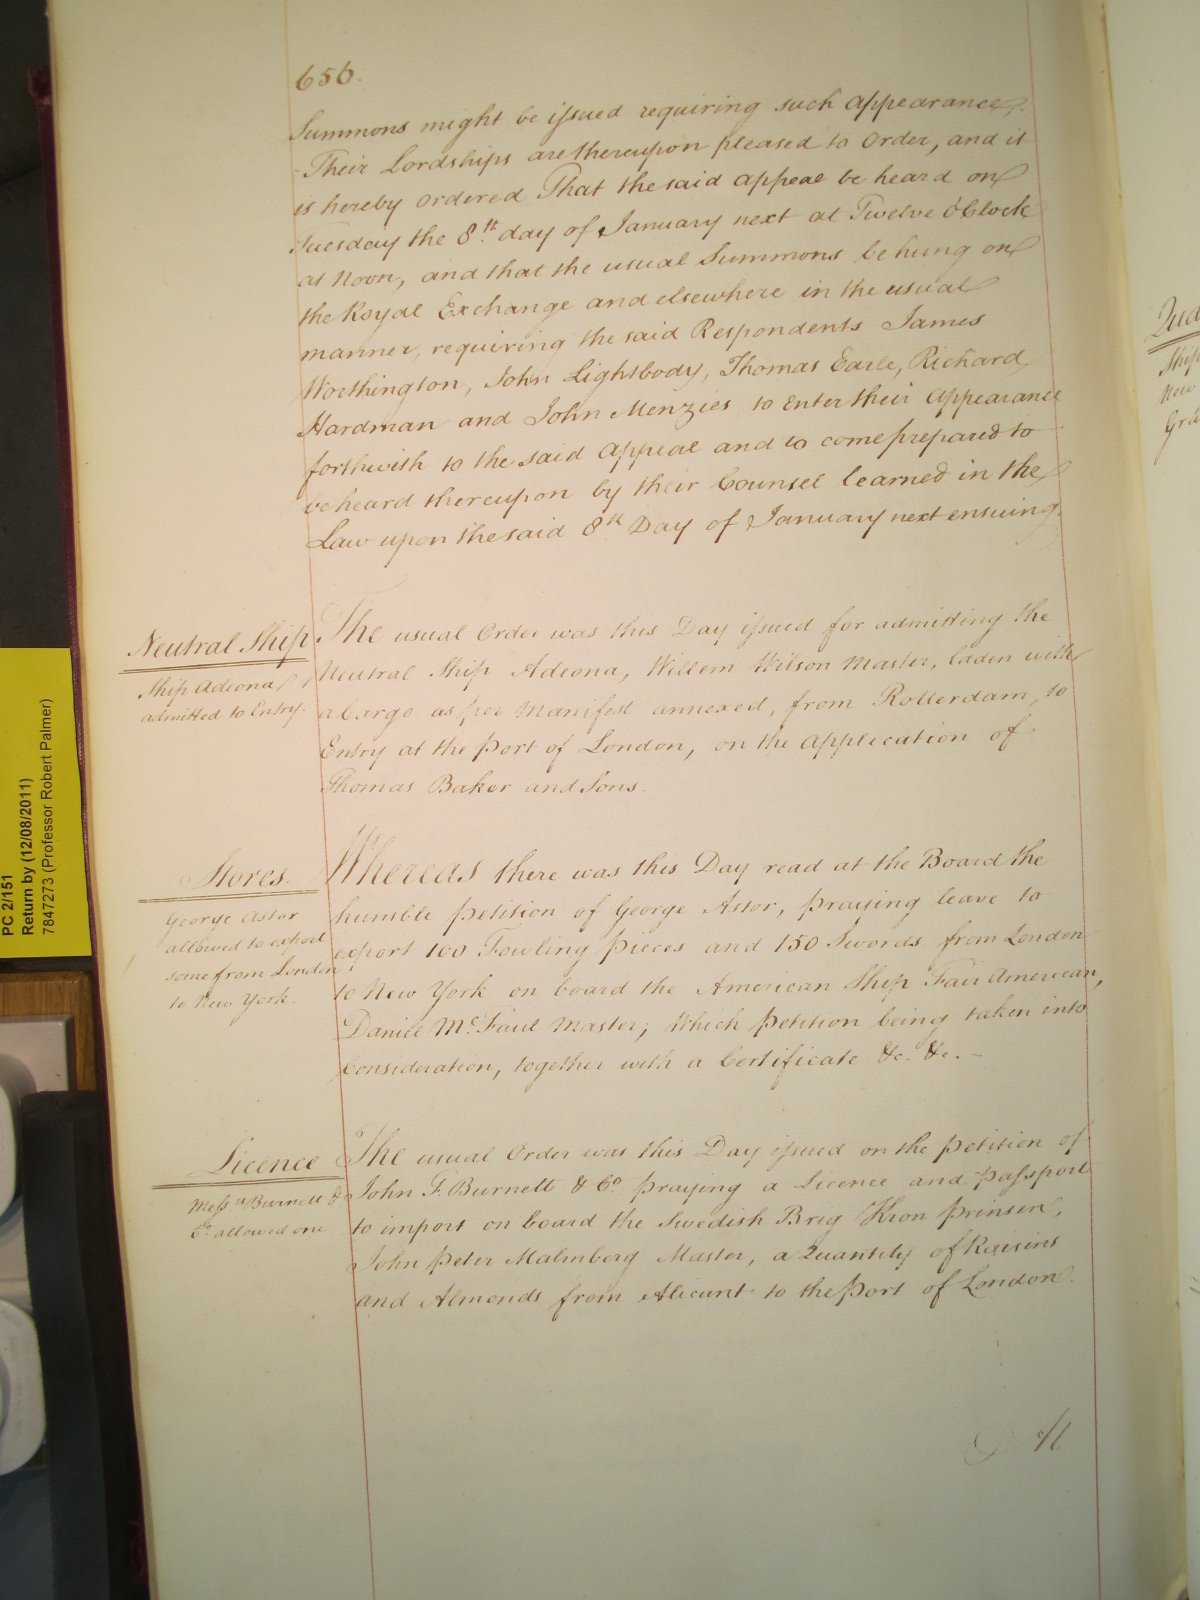 656.
Summons might be issued requiring such Appearance.
Their Lordships are thereupon pleased to Order, and it
is hereby Ordered That the said Appeal be heard on
Tuesday the 8th. day of January next at Twelve o'Clock
at Noon, and that the usual Summons be hung on
the Royal Exchange and elsewhere in the usual
manner, requiring the said Respondents James
Worthington, John Lightbody, Thomas Earle, Richard
Hardman and John Menzies to Enter their Appearance
forthwith to the said Appeal and to come prepared to
be heard thereupon by their Counsel learned in the
Law upon the said 8th Day of January next ensuing.
Neutral Ship
Ship Adeona
admitted to Entry.
The usual Order was this Day issued for admitting the
Neutral Ship Adeona, Willem Wilson Master, laden with
a Cargo as per Manifest annexed, from Rotterdam, to
Entry at the Port of London, on the Application of
Thomas Baker and Sons.
Stores.
George Astor
allowed to export
some from London
to New York.
Whereas there was this Day read at the Board the
humble Petition of George Astor, Praying leave to
export 100 Fowling Pieces and 150 Swords from London
to New York on board the American Ship Fair American,
Daniel Mc. Faul Master; Which Petition being taken into
Consideration, together with a Certificate &c. &c. -
Licence
Messrs Burnett &
Co. allowed one
The usual Order was this Day issued on the Petition of
John F. Burnett & Co. Praying a Licence and Passport
to import on board the Swedish Brig Kron Prinsen,
John Peter Malmberg Master, a Quantity of Raisins
and Almonds from Alicant to the Port of London.
At
PC 2/151
Return by (12/08/2011)
7847273 (Professor Robert Palmer)
Ship
New